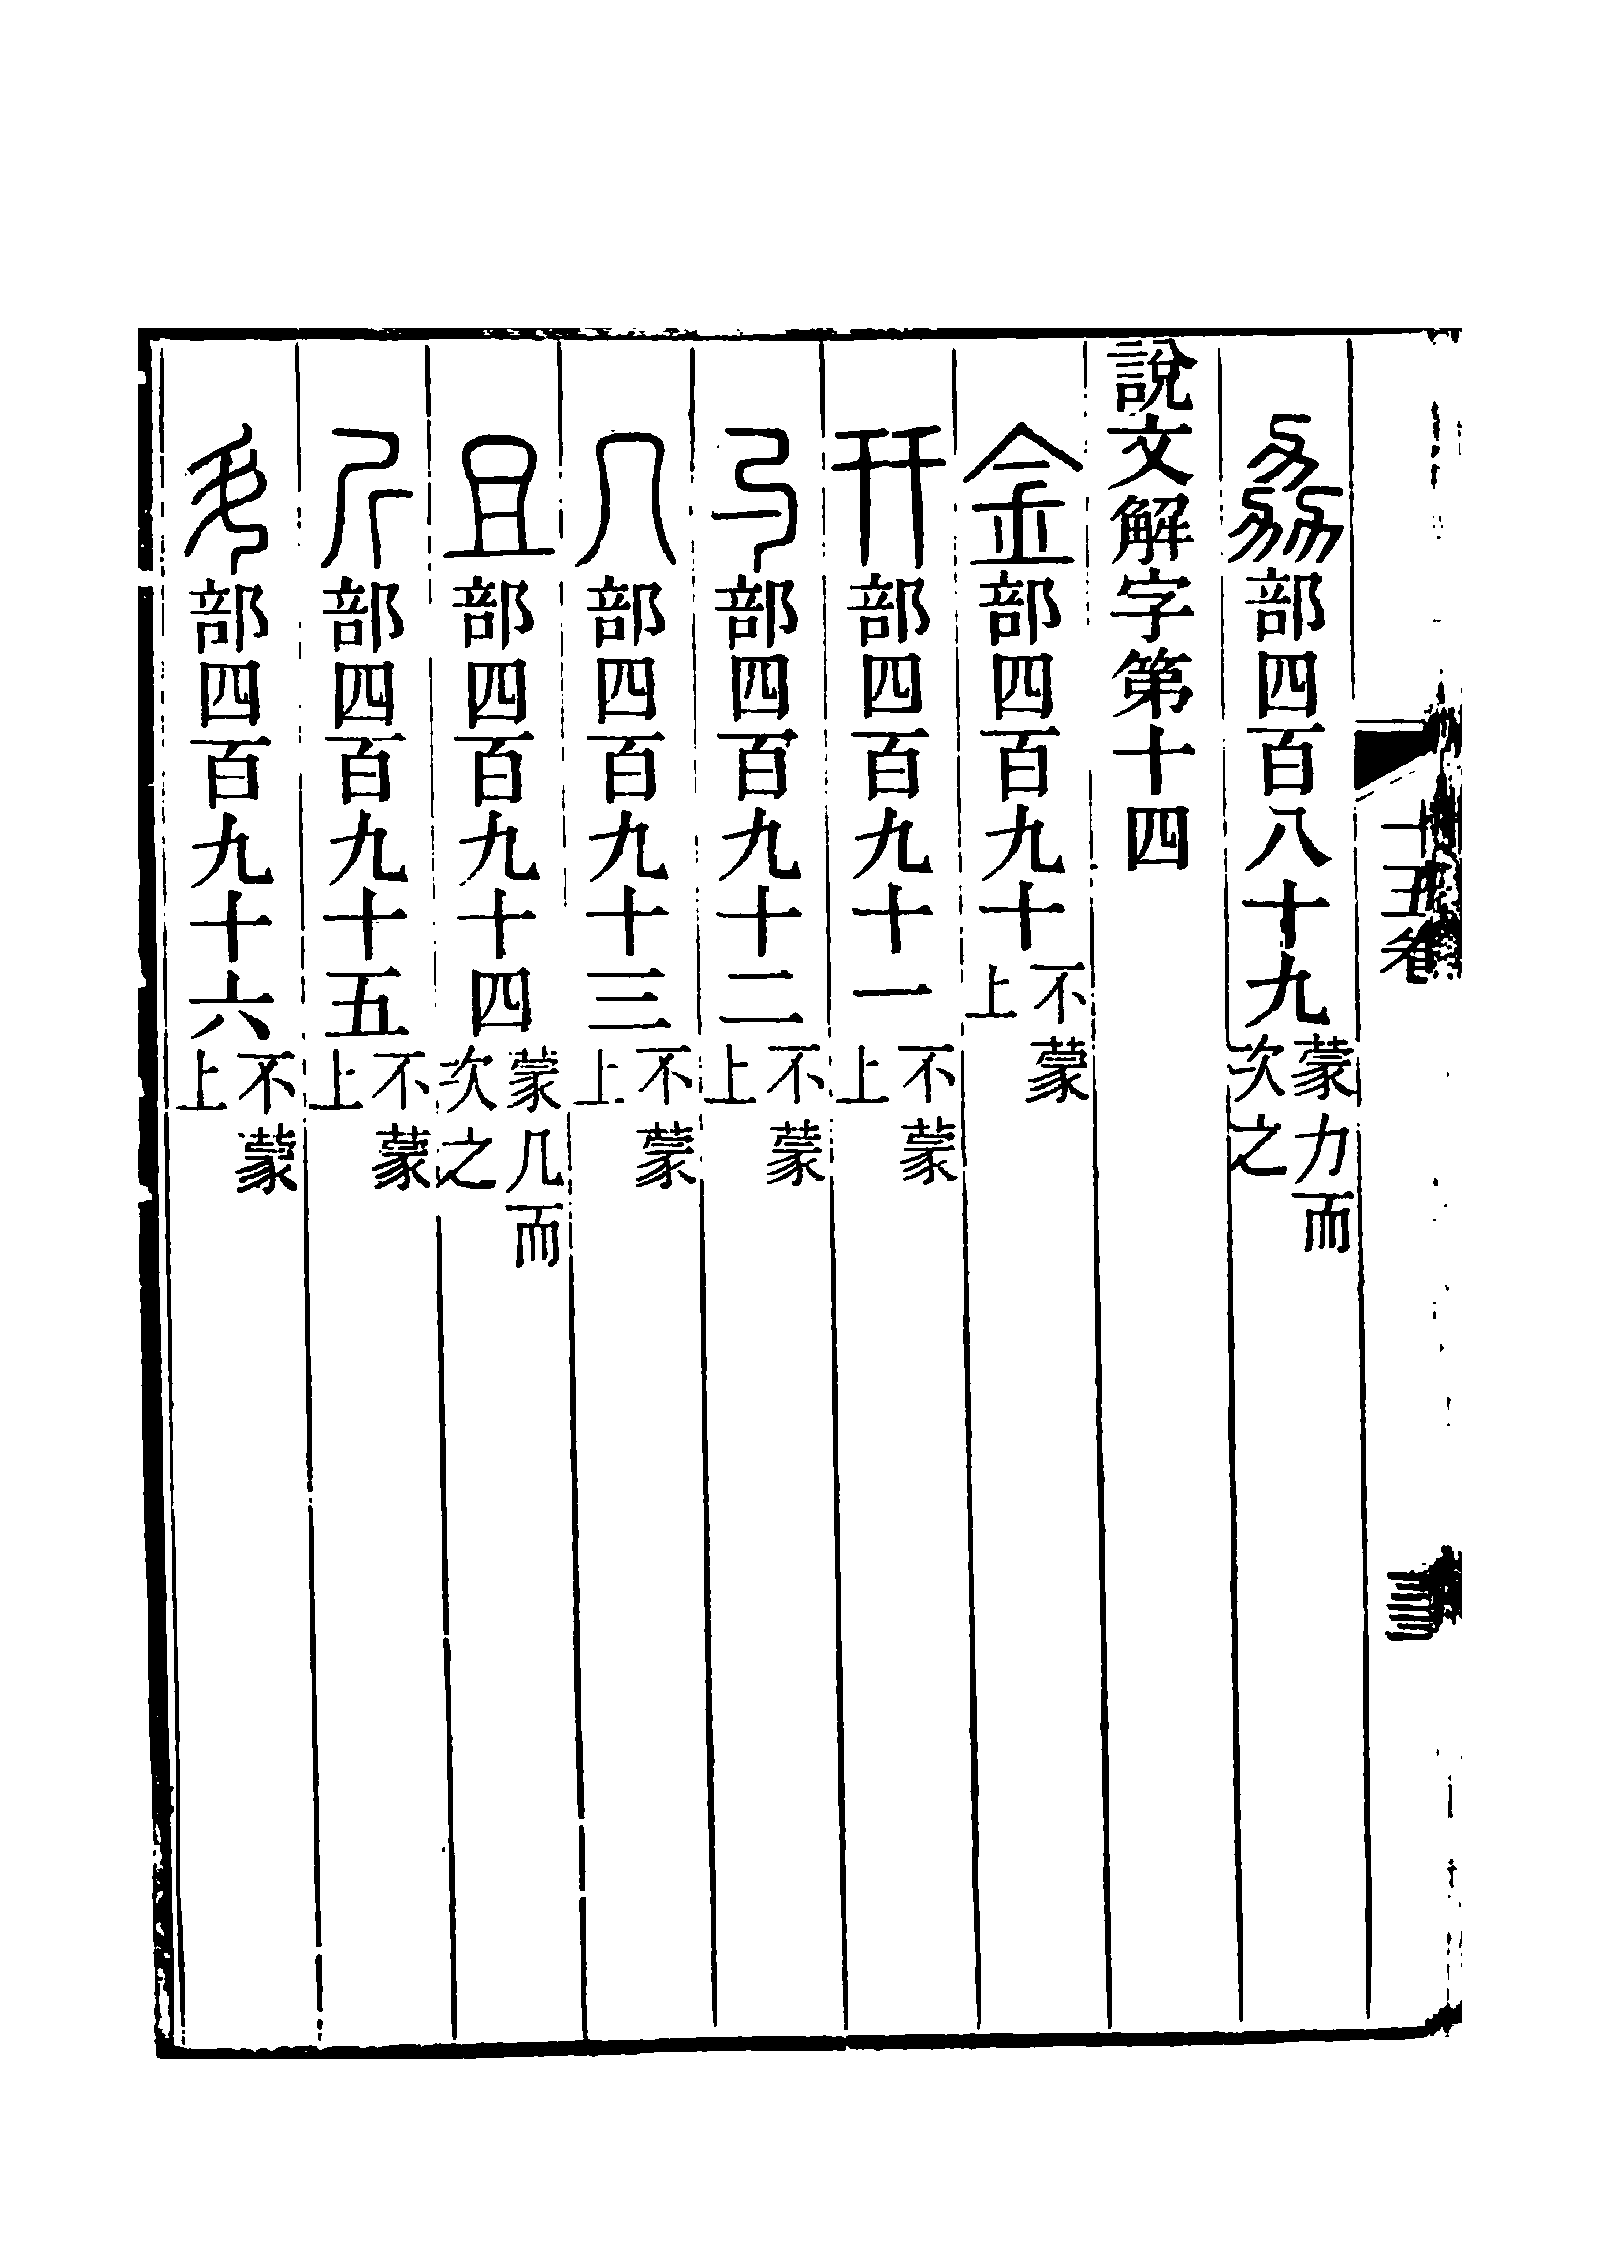 劦部四百八十九蒙力而次之
說文解字第十四
金部四百九十不蒙上
幵部四百九十一不蒙上
勺部四百九十二不蒙上
几部四百九十三不蒙上
且部四百九十四蒙几而次之
斤部四百九十五不蒙上
矛部四百九十六不蒙上
十五卷